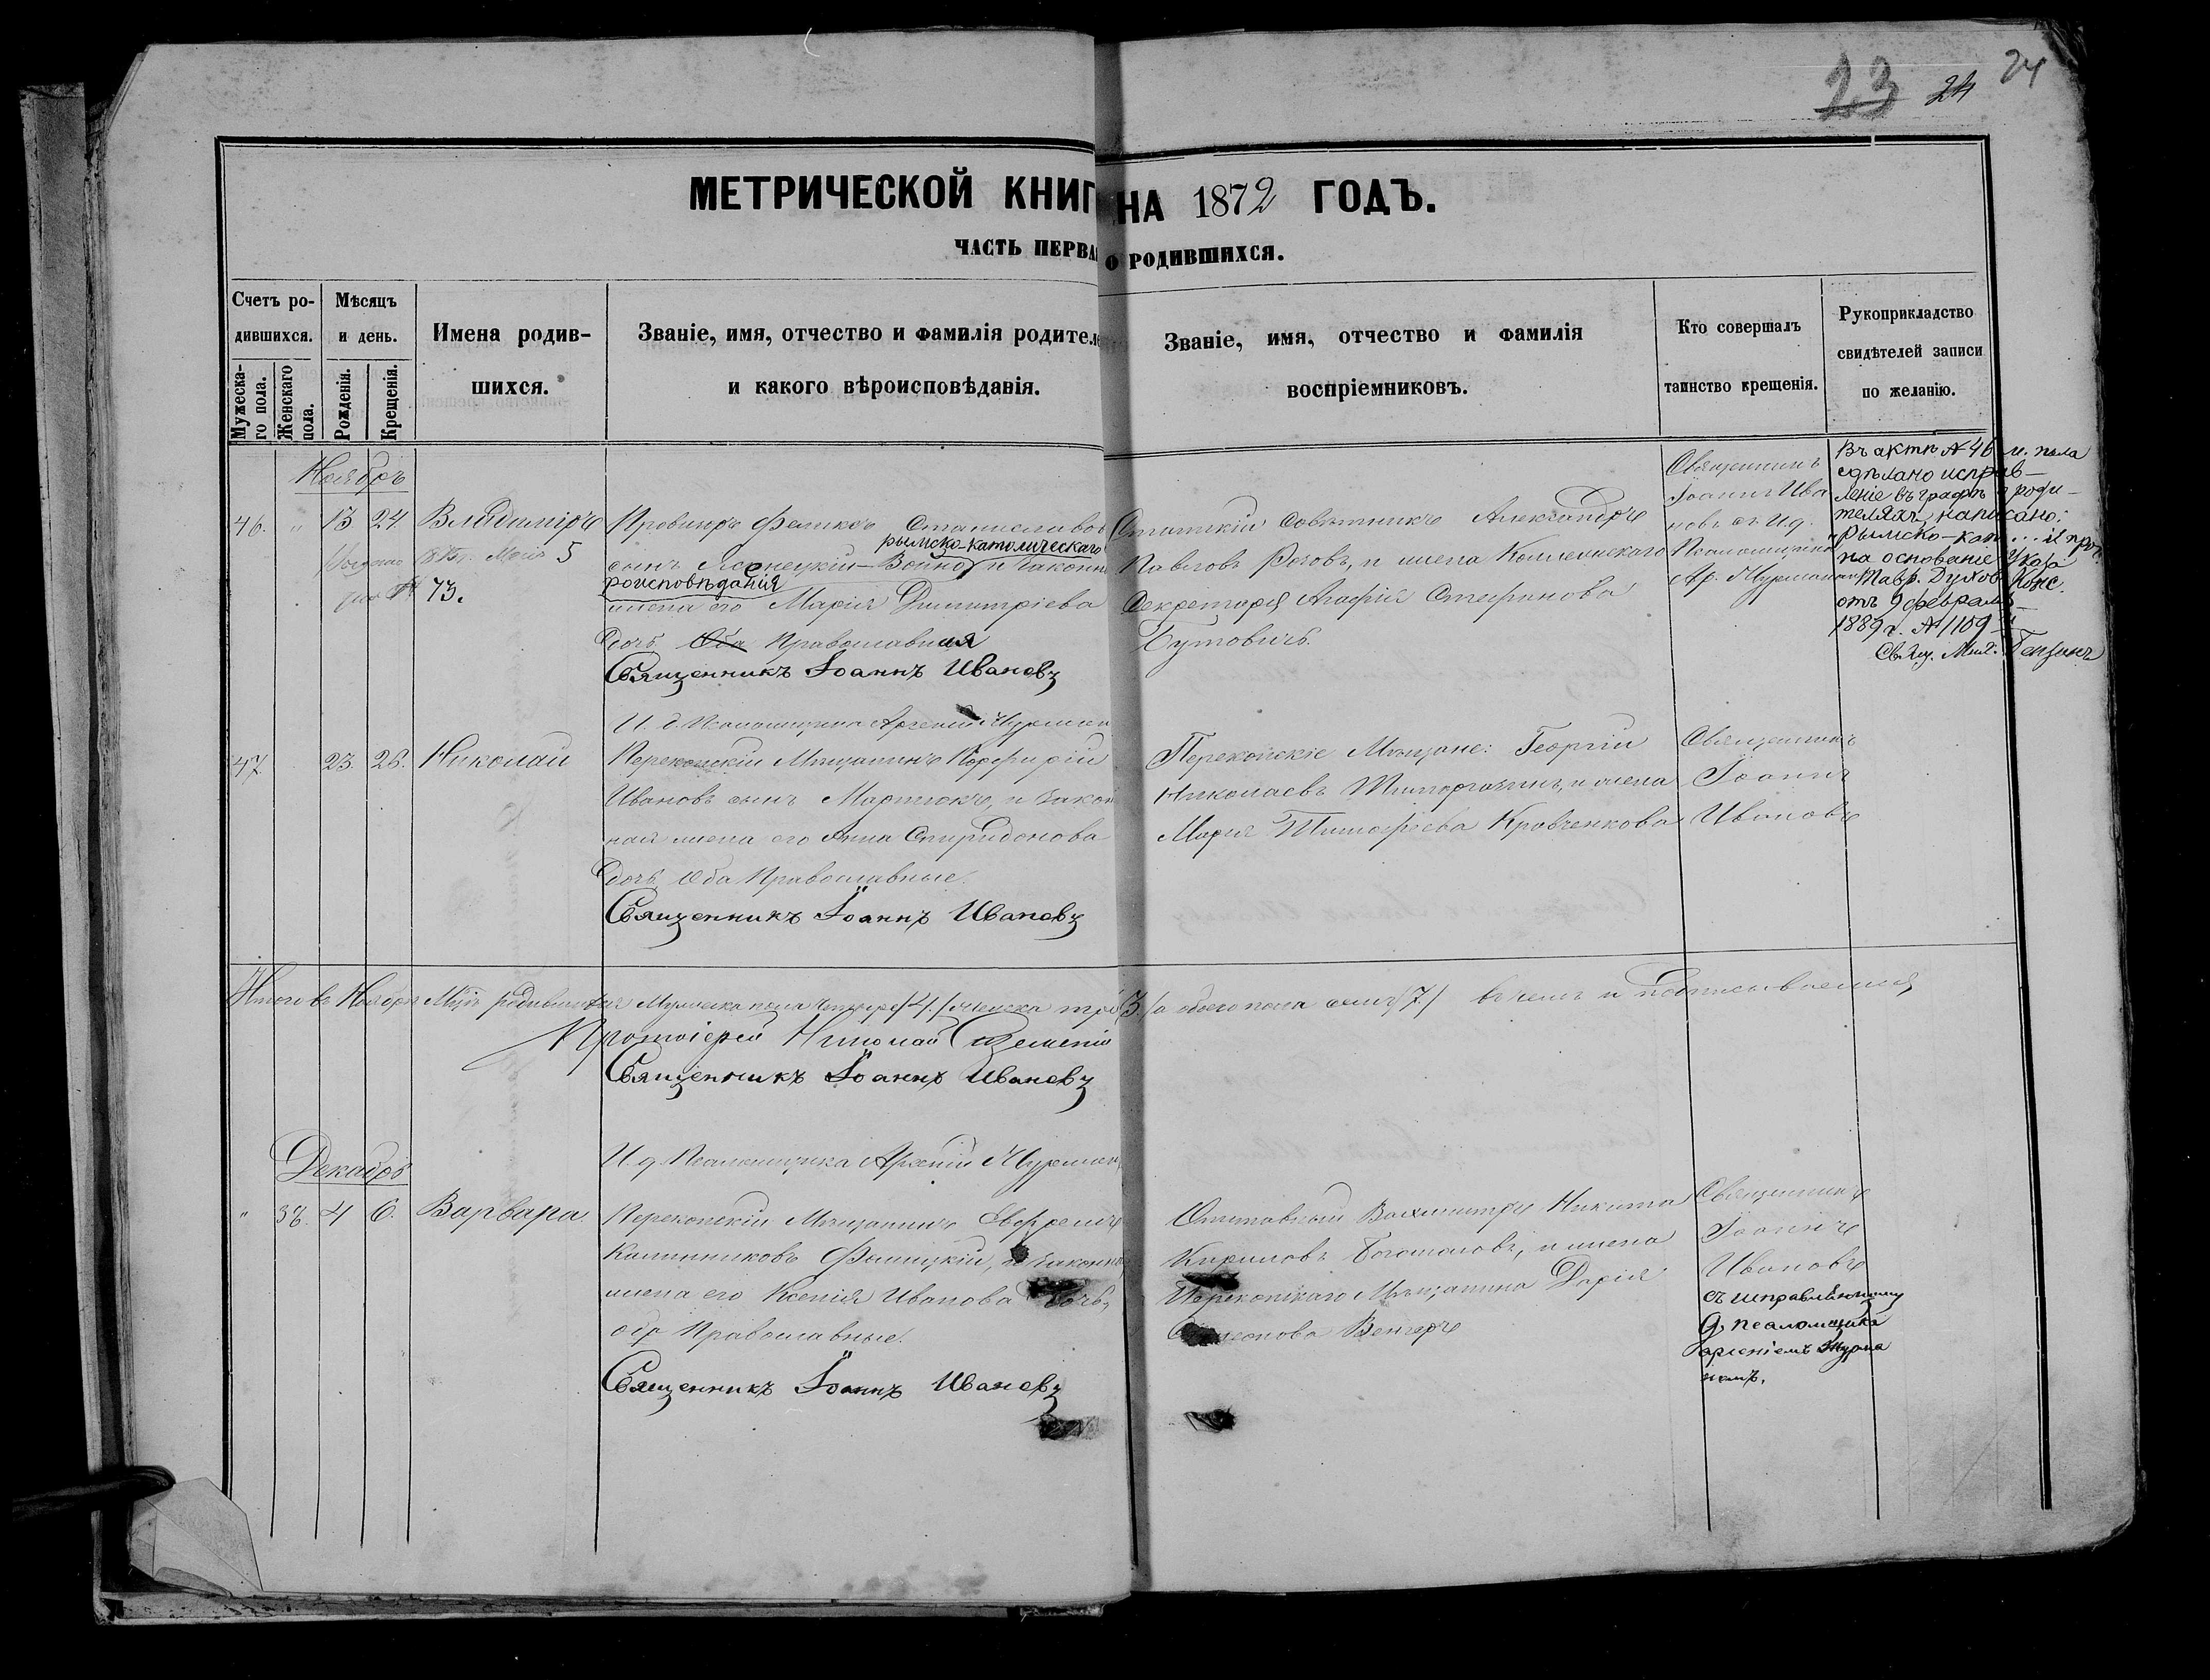 23 24 24
МЕТРИЧЕСКОЙ КНИГ НА 1872 ГОДЪ.
ЧАСТЬ ПЕРВА О РОДИВШИХСЯ.
Счетъ ро-
дившихся.
Мужеска-
го пола.
Женскаго
пола.
Мѣсяцъ
и день.
Рожденія.
Крещенія.
Имена родив-
шихся.
Званіе, имя, отчество и фамилія родителе
и какого вѣроисповѣданія.
Званіе, имя, отчество и фамилія
воспріемниковъ.
Кто совершалъ
таинство крещенія.
Рукоприкладство
свидѣтелей записи
по желанію.
Ноябрь
46. " 13 24 Владиміръ
5
73.
Провизоръ Феликсъ Станиславовъ
римско-католическаго
сынъ Войно и законн
роисповѣданія
жена его Марія Димитріева
дочь Оба Православная
Священникъ Іоаннъ Ивановъ
Статскій Совѣтникъ Александръ
Павловъ Роговъ, и жена Коллежскаго
Секретаря Агафія Стефанова
Бутовичъ.
Священникъ
Іоаннъ Ива
новъ съ И. д.
Псаломщика
Ар.
Въ актѣ № 46 м. пола
сдѣлано исправ-
леніе въ графѣ о роди-
теляхъ, написано:
"Рымско-кат... и проч.
на основаніе Указа
Тавр. Духов. Конс.
отъ 9 февраля
1889 г. № 1109
Свящ. Мих.
И. д. Псаломщика Арсеній
47. 23. 26. Николай
Перекопскій Мѣщанинъ Порфирій
Ивановъ сынъ Мартюкъ, и закон
ная жена его Анна Спиридонова
дочь Оба Православные.
Священникъ Іоаннъ Ивановъ
Перекопскіе Мѣщане: Георгій
Николаевъ и жена
Марія Тимофеева Кравченкова
Священникъ
Іоаннъ
Ивановъ
Итого въ Ноябрѣ Мцѣ родившихся Мужеска пола четыре /4./ женска три /3./ а обоего пола семь /7./ въ чемъ и подписываемся,
Протоіерей Николай
Священникъ Іоаннъ Ивановъ
Декабрь
И. д. Псаломщика Арсеній
" 38. 4 6. Варвара.
Перекопскій Мѣщанинъ Евфремъ
Калинниковъ и законна
жена его Ксенія Иванова дочь,
оба Православные.
Священникъ Іоаннъ Ивановъ
Отставный Вахмистръ Никита
Кириловъ Богомоловъ, и жена
Перекопскаго Мѣщанина Дарія
Венгеръ
Священникъ
Іоаннъ
Ивановъ
съ исправляющимъ
д. псаломщика
Арсеніемъ Журма
номъ.